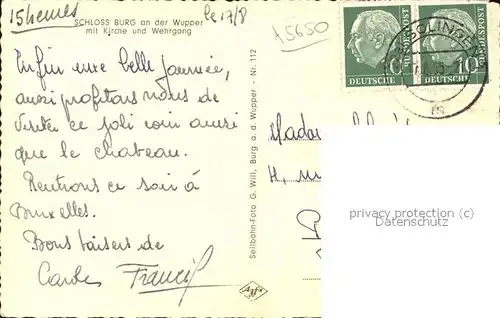 15 hemes
le 17/8
SCHLOSS BURG an der Wupper
mit Kirche und Wehrgang
A5650
Enfin une belle journée,
aussi profitons nous de
visiter ce joli coin ainsi
que le chateau.
Rentrons ce soir à
Bruxelles.
Bons baisers de
Francis
Seilbahn-Foto G. Will, Burg a. d. Wupper - Nr. 112
Agfa
DEUTSCHE BUNDESPOST
DEUTSCHE BUNDESPOST 10
SOLINGEN
m
Mada
4, ru
privacy protection (c)
Datenschutz